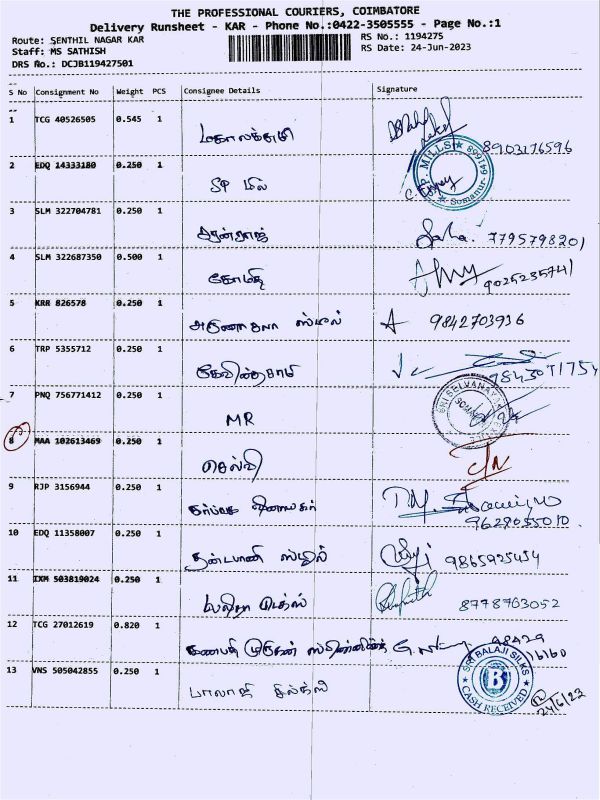 THE PROFESSIONAL COURIERS, COIMBATORE
Delivery Runsheet - KAR - Phone No.:0422-3505555 - Page No.:1
Route: SENTHIL NAGAR KAR
RS No.: 1194275
Staff: MS SATHISH
RS Date: 24-Jun-2023
DRS No.: DCJB119427501
S No Consignment No Weight PCS Consignee Details Signature
1 TCG 40526505 0.545 1
மகாலக்சுமி
8903176596
2 EDQ 14333180 0.250 1
P. MILLS Somanur 641668
SP மில்
3 SLM 322704781 0.250 1
7795798201
4 SLM 322687350 0.500 1
கோமதி 9025235741
5 KRR 826578 0.250 1
அருணாசலா ஸ்மல் A 9842703936
6 TRP 5355712 0.250 1
7 PNQ 756771412 0.250 1
MR
8 MAA 102613469 0.250 1
செல்வி
9 RJP 3156944 0.250 1
கற்பக விநாயகர்
10 EDQ 11358007 0.250 1
தண்டபாணி 9865925454
11 IXM 503819024 0.250 1
டெக்ஸ் 8778703052
12 TCG 27012619 0.820 1
கணபதி முருகன்
98429
16160
13 VNS 505042855 0.250 1
SRI BALAJI SILKS
B
CASH RECEIVED
பாலாஜி சில்க்ஸ்
24/6/23